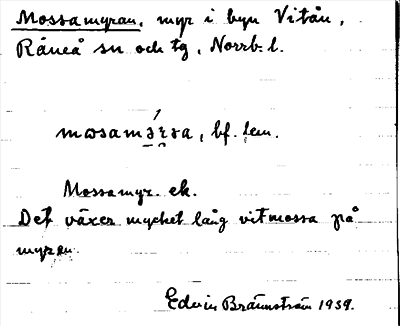 Mossamyran, myr i byn Vitån,
Råneå sn och tg, Norrb. l.
bf. fem.
Mossamyr. ek.
Det växer mycket lång vitmossa på
myren
Edvin Brännström 1939.